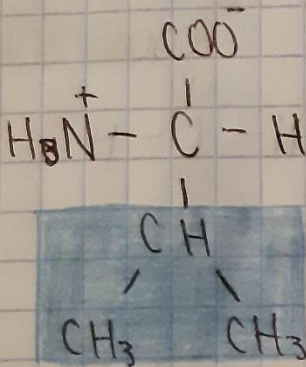 COO⁻
H₃N⁺ - C - H
CH
CH₃ CH₃